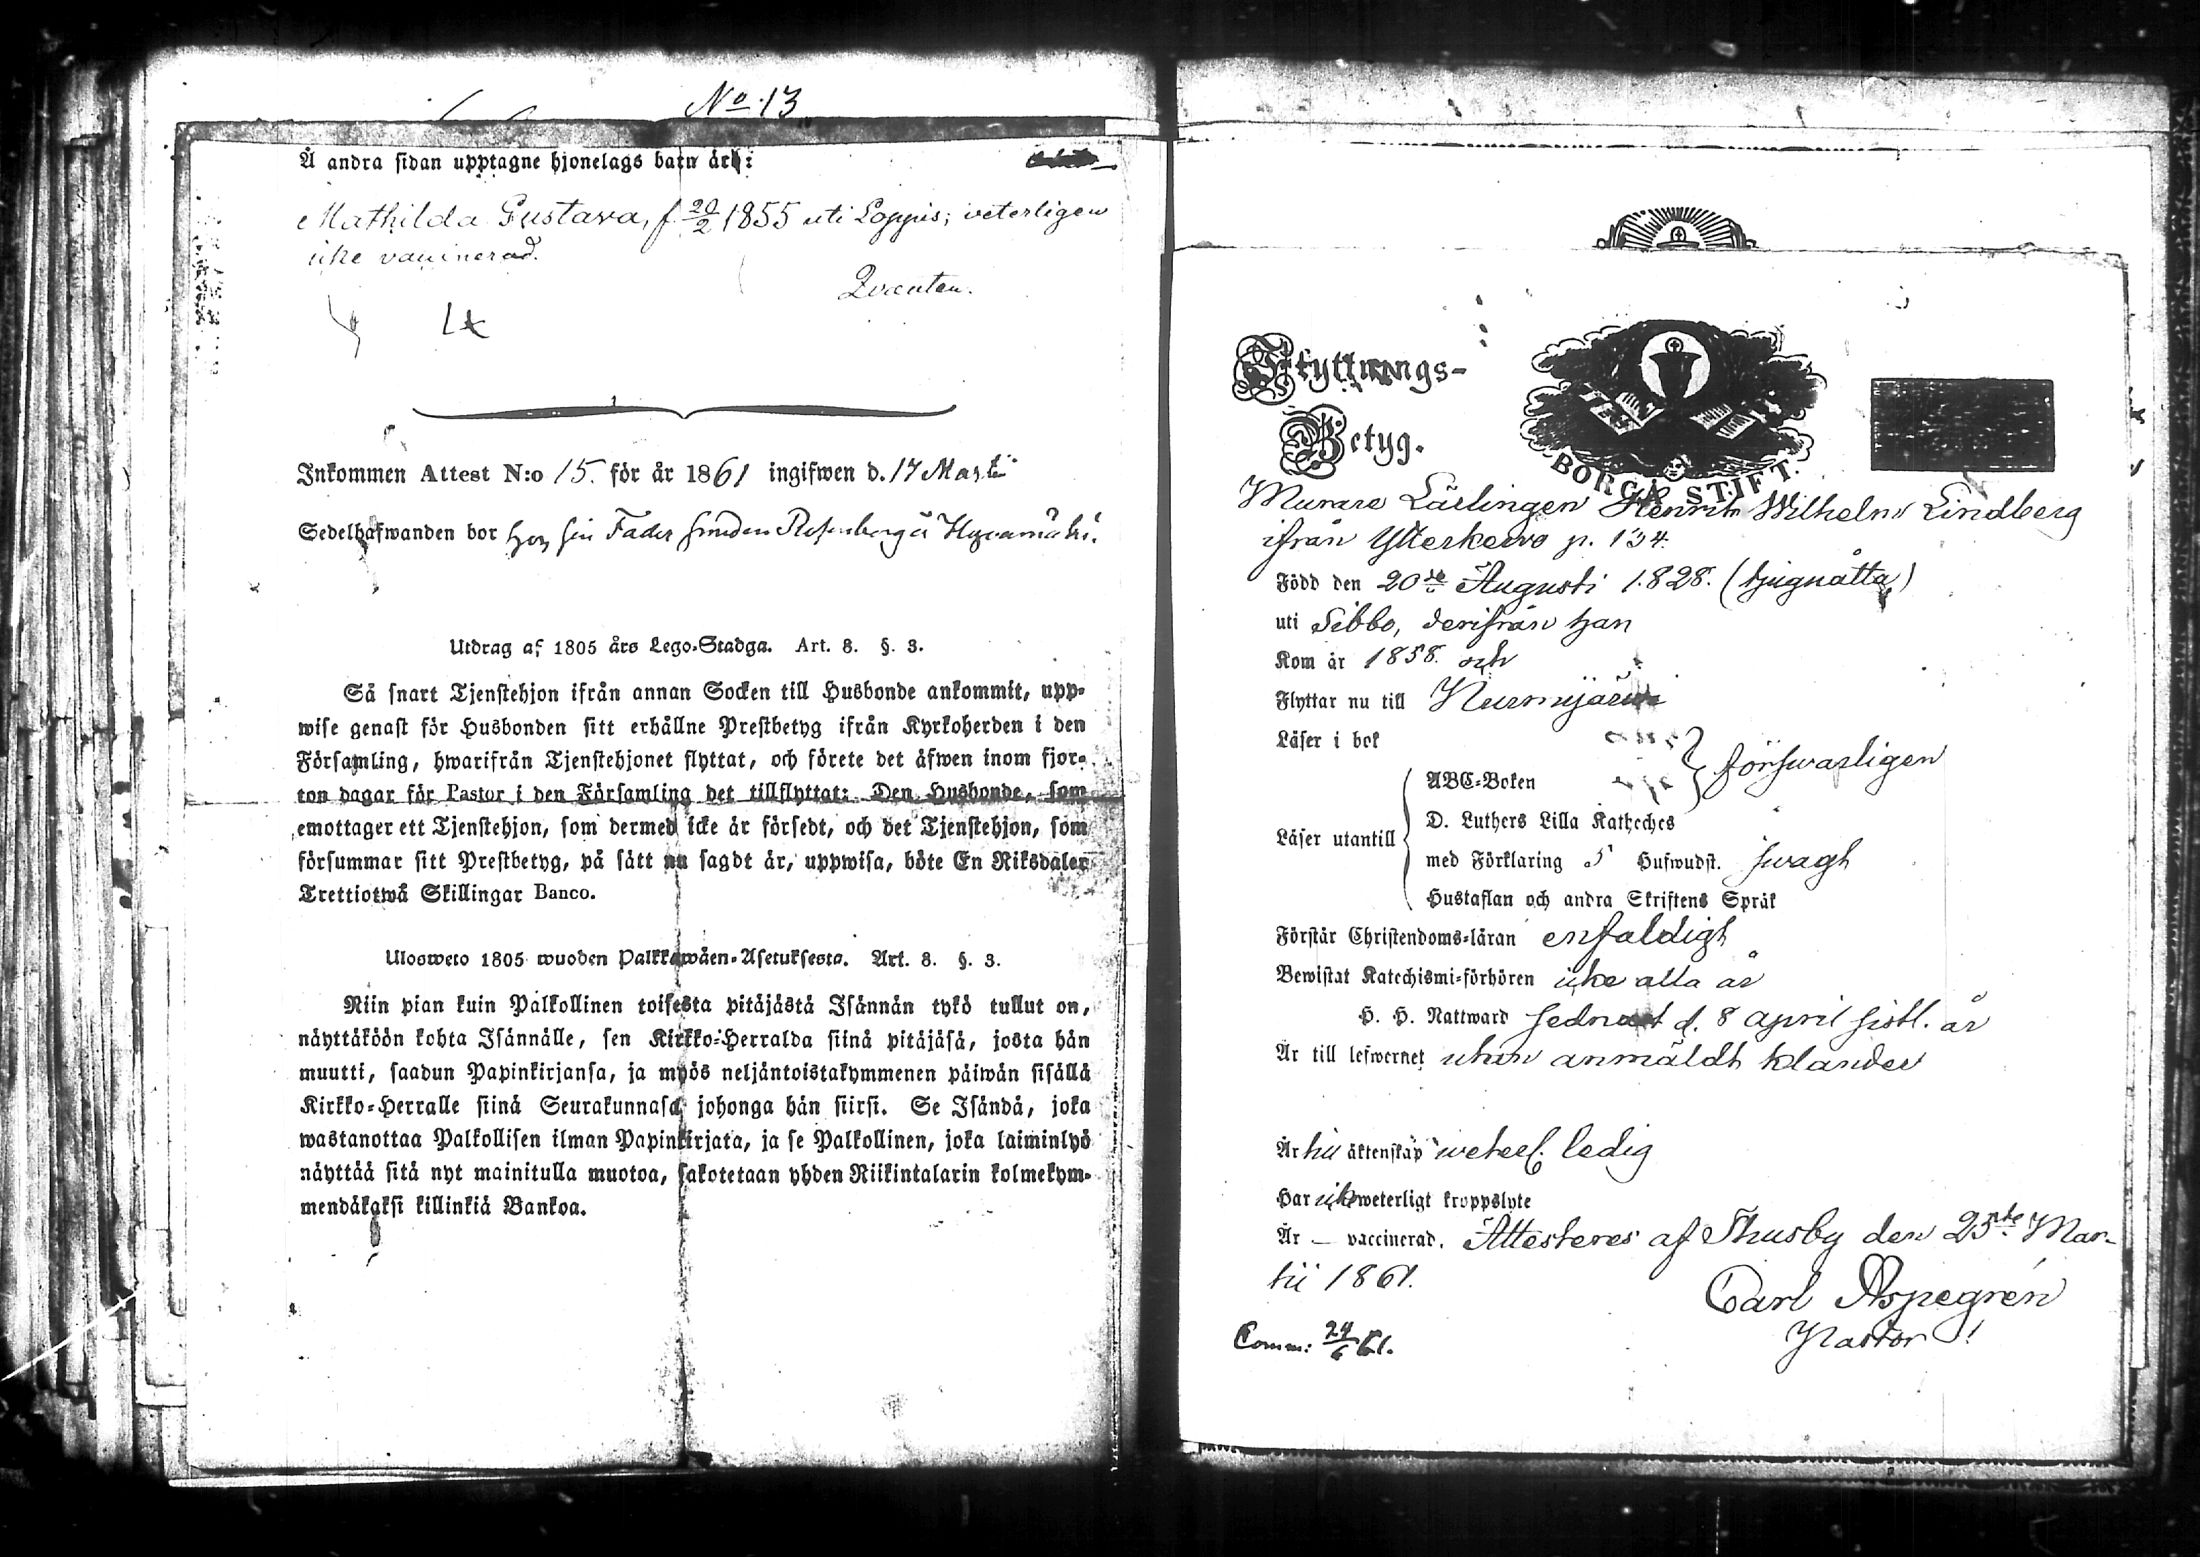 No 13
Å andra sidan upptagne hjonelags barn är:
Mathilda Gustava, f. 20/2 1855 uti Loppis; veterligen
icke vaccinerad.
Qvanten.
Inkommen Attest N:o 15. för år 1861 ingifwen d. 17 Martii
Sedelhafwanden bor hos sin Fader
Utdrag af 1805 års Lego-Stadga. Art. 8. §. 3.
Så snart Tjenstehjon ifrån annan Socken till Husbonde ankommit, upp-
wise genast för Husbonden sitt erhållne Prestbetyg ifrån Kyrkoherden i den
Församling, hwarifrån Tjenstehjonet flyttat, och förete det äfwen inom fjor-
ton dagar för Pastor i den Församling det tillflyttat: Den Husbonde, som
emottager ett Tjenstehjon, som dermed icke är försedt, och det Tjenstehjon, som
försummar sitt Prestbetyg, på sätt nu sagdt är, uppwisa, böte En Riksdaler
Trettiotwå Skillingar Banco.
Ulosweto 1805 wuoden Palkkawäen-Asetuksesta. Art. 8. §. 3.
Niin pian kuin Palkollinen toisesta pitäjästä Isännän tykö tullut on,
näyttäköön kohta Isännälle, sen Kirkko-Herralda siinä pitäjäsä, josta hän
muutti, saadun Papinkirjansa, ja myös neljäntoistakymmenen päiwän sisällä
Kirkko-Herralle siinä Seurakunnasa johonga hän siirsi. Se Isändä, joka
wastanottaa Palkollisen ilman Papinkirjata, ja se Palkollinen, joka laiminlyö
näyttää sitä nyt mainitulla muotoa, sakotetaan yhden Riikintalarin kolmekym-
mendäkaksi killinkiä Bankoa.
Flyttnings-
Betyg.
BORGÅ STIFT.
Murare Lärlingen Henrik Wilhelm Lindberg
ifrån Ytterkervo p. 134.
Född den 20de Augusti 1828. (tjugnåtta)
uti Sibbo, derifrån han
Kom år 1858. och
Flyttar nu till Nurmijärvi
Läser i bok
försvarligen
ABC-Boken
D. Luthers Lilla Katheches
Läser utantill
med Förklaring 5 Hufwudst. svagt
Hustaflan och andra Skriftens Språk
Förstår Christendoms-läran enfaldigt
Bewistat Katechismi-förhören icke alla år
H. H. Nattward sednast d. 8 april sistl. år
Är till lefwernet utan anmäldt klander
Är till äktenskap weterl. ledig
Har icke weterligt kroppslyte
Är — vaccinerad. Attesteres af Thusby den 25te Mar-
tii 1861.
Carl Aspegrén
Pastor
Comm: 24/6 61.